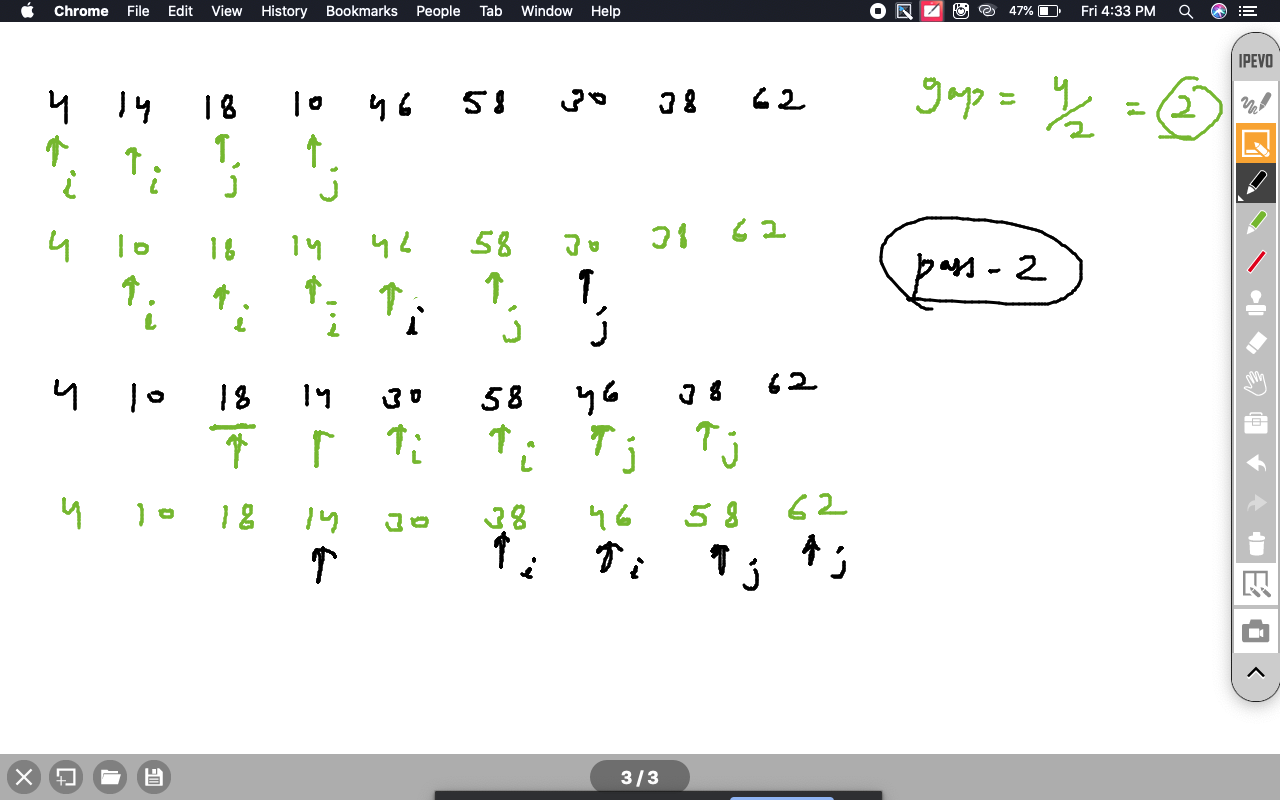 Chrome File Edit View History Bookmarks People Tab Window Help 47% Fri 4:33 PM
IPEVO
4 14 18 10 46 58 30 38 62
gap = 4/2 = 2
i i j j
4 10 18 14 46 58 30 38 62
pass - 2
i i i i j j
4 10 18 14 30 58 46 38 62
i i j j
4 10 18 14 30 38 46 58 62
i i j j
3 / 3